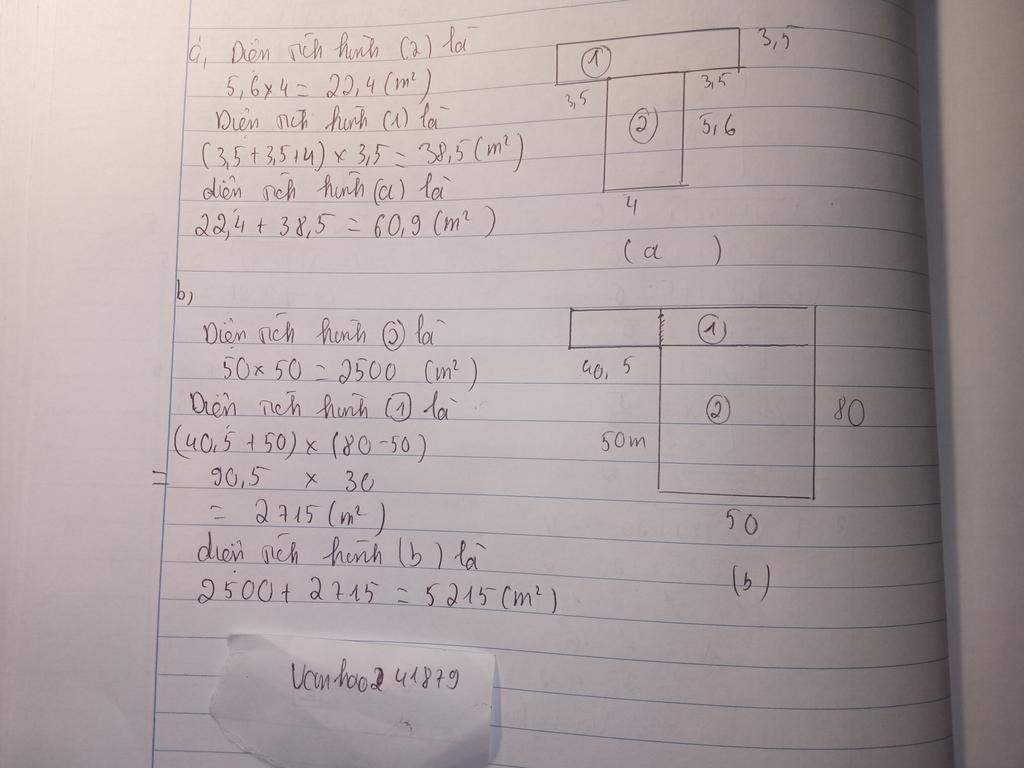 a, Diện tích hình (2) là
5,6 x 4 = 22,4 (m²)
Diện tích hình (1) là
(3,5 + 3,5 + 4) x 3,5 = 38,5 (m²)
diện tích hình (a) là
22,4 + 38,5 = 60,9 (m²)
1
3,5
3,5
3,5
2
5,6
4
(a)
b,
Diện tích hình (2) là
50 x 50 = 2500 (m²)
Diện tích hình (1) là
(40,5 + 50) x (80 - 50)
= 90,5 x 30
= 2715 (m²)
diện tích hình (b) là
2500 + 2715 = 5215 (m²)
1
40,5
2
80
50m
50
(b)
Vanhao241879